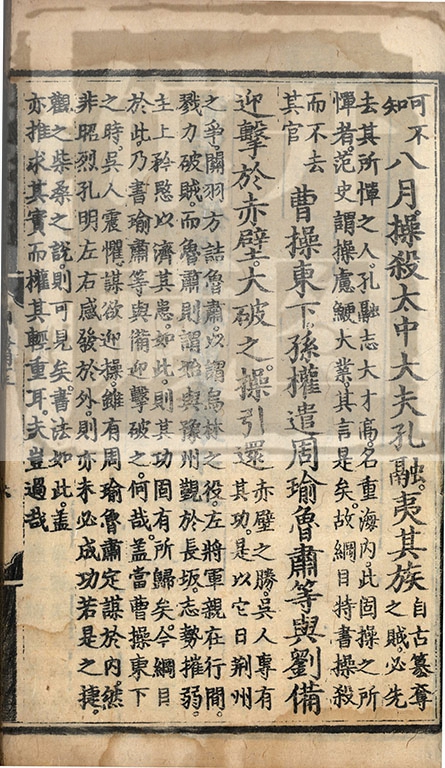 可不
知
八月。操殺太中大夫孔融。夷其族
自古篡奪
之賊。必先
去其所憚之人。孔融志大才高。名重海內。此固操之所
憚者。范史謂操慮鯁大業。其言是矣。故綱目特書操殺
而不去
其官
曹操東下。孫權遣周瑜魯肅等與劉備
迎擊於赤壁。大破之。操引還
赤壁之勝。吳人專有
其功。是以它日荊州
之爭。關羽方詰魯肅。以謂烏林之役。左將軍親在行間。
戮力破賊。而魯肅則謂始與豫州觀於長坂。志勢摧弱。
主上矜愍以濟其患。如此。則其功固有所歸矣。今綱目
於此。乃書瑜肅等與備迎擊破之。何哉。蓋當曹操東下
之時。吳人震懼。謀欲迎操。雖有周瑜魯肅定謀於內。然
非昭烈孔明左右感發於外。則亦未必成功若是之捷。
觀之柴桑之說。則可見矣。書法如此。蓋
亦推求其實而權其輕重耳。夫豈過哉